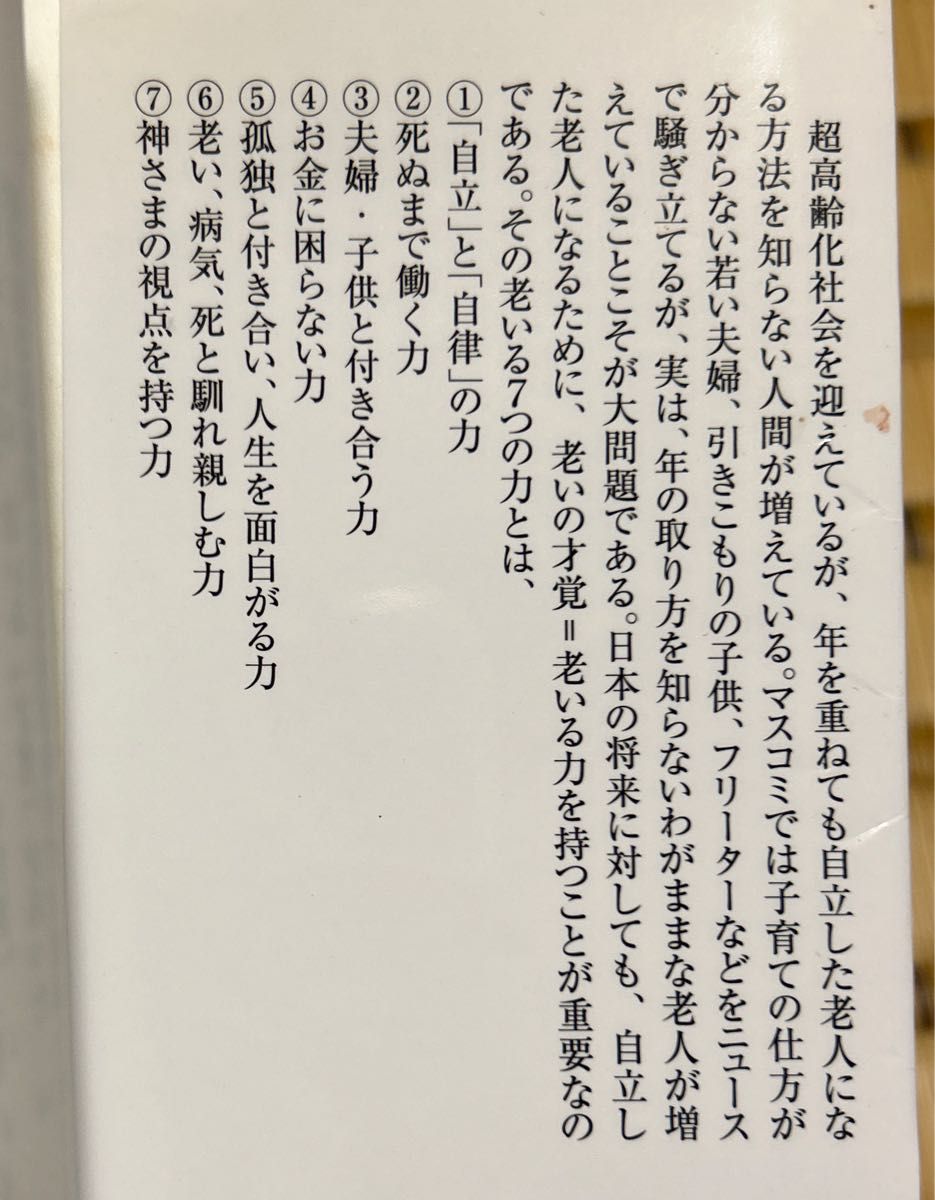 超高齢化社会を迎えているが、年を重ねても自立した老人にな
る方法を知らない人間が増えている。マスコミでは子育ての仕方が
分からない若い夫婦、引きこもりの子供、フリーターなどをニュース
で騒ぎ立てるが、実は、年の取り方を知らないわがままな老人が増
えていることこそが大問題である。日本の将来に対しても、自立し
た老人になるために、老いの才覚＝老いる力を持つことが重要なの
である。その老いる7つの力とは、
①「自立」と「自律」の力
②死ぬまで働く力
③夫婦・子供と付き合う力
④お金に困らない力
⑤孤独と付き合い、人生を面白がる力
⑥老い、病気、死と馴れ親しむ力
⑦神さまの視点を持つ力